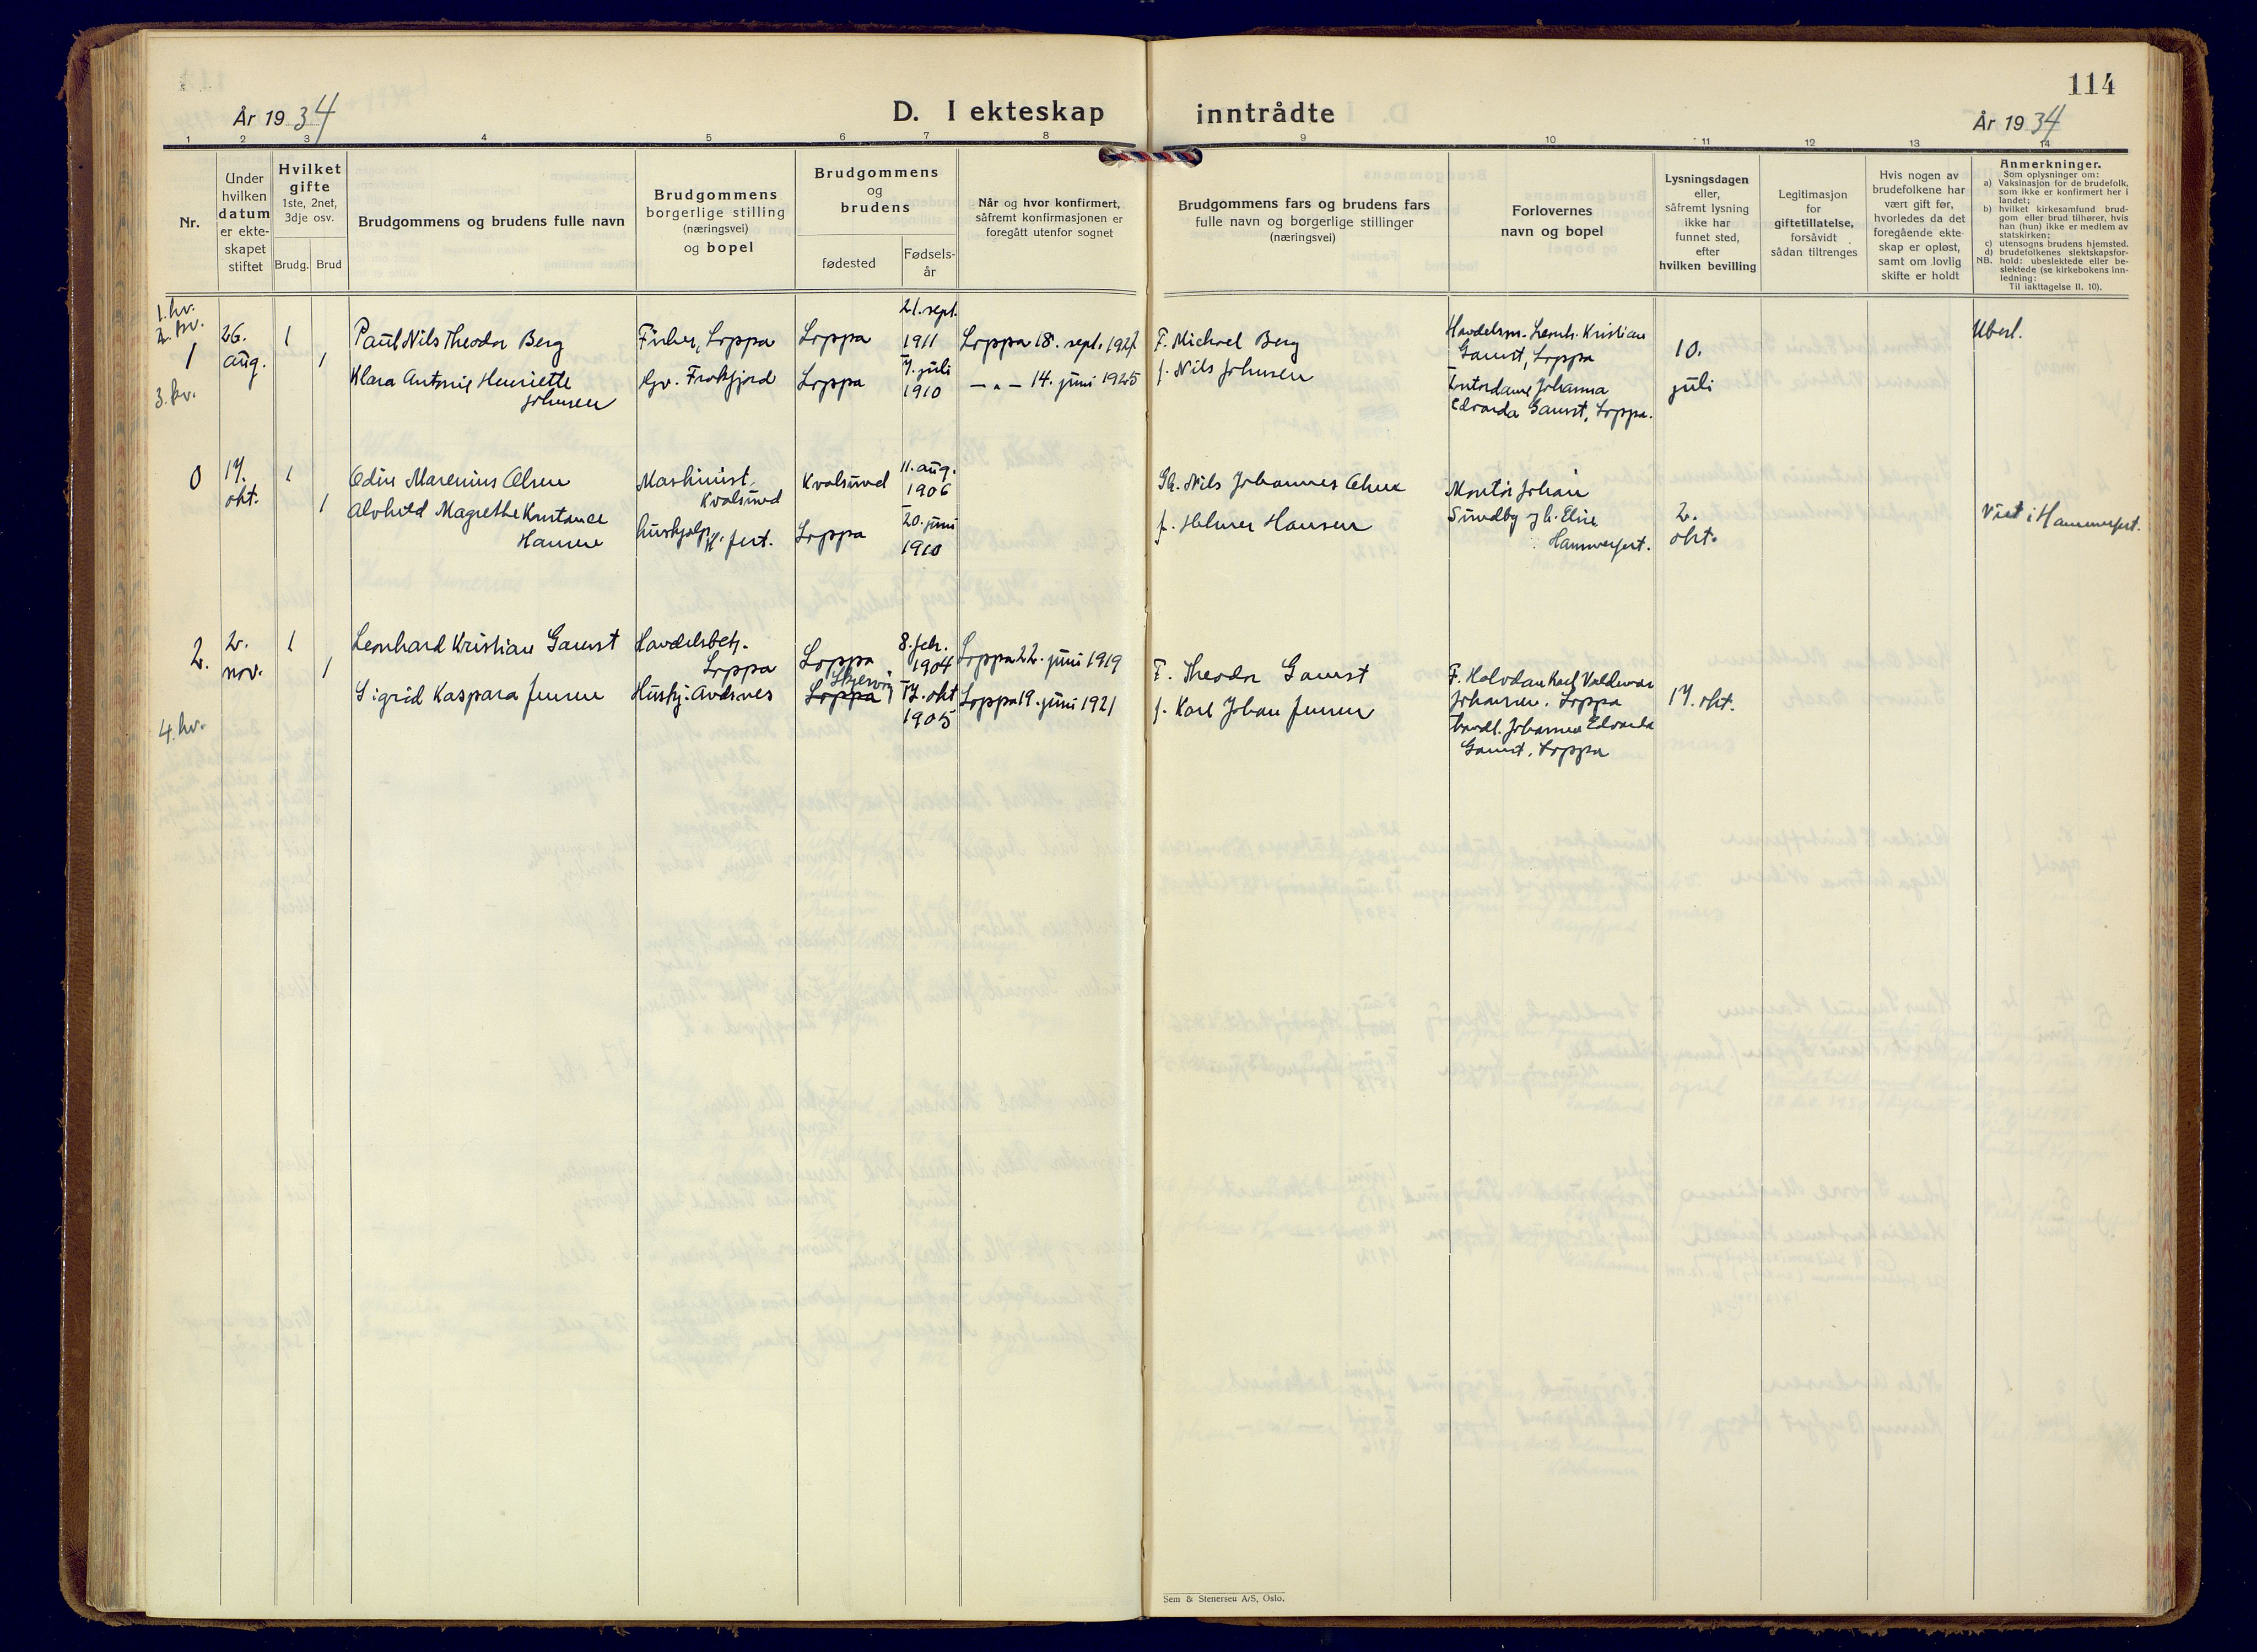 114
År 1934
D. I ekteskap inntrådte
År 1934
1 2 3 4 5 6 7 8 9 10 11 12 13 14
Nr.
Under
hvilken
datum
er ekte-
skapet
stiftet
Hvilket
gifte
1ste, 2net,
3dje osv.
Brudg. Brud
Brudgommens og brudens fulle navn
Brudgommens
borgerlige stilling
(næringsvei)
og bopel
Brudgommens
og
brudens
fødested
Fødsels-
år
Når og hvor konfirmert,
såfremt konfirmasjonen er
foregått utenfor sognet
Brudgommens fars og brudens fars
fulle navn og borgerlige stillinger
(næringsvei)
Forlovernes
navn og bopel
Lysningsdagen
eller,
såfremt lysning
ikke har
funnet sted,
efter
hvilken bevilling
Legitimasjon
for
giftetillatelse,
forsåvidt
sådan tiltrenges
Hvis nogen av
brudefolkene har
vært gift før,
hvorledes da det
foregående ekte-
skap er opløst,
samt om lovlig
skifte er holdt
Anmerkninger.
Som oplysninger om:
a) Vaksinasjon for de brudefolk,
som ikke er konfirmert her i
landet;
b) hvilket kirkesamfund brud-
gom eller brud tilhører, hvis
han (hun) ikke er medlem av
statskirken;
c) utensogns brudens hjemsted.
d) brudefolkenes slektskapsfor-
hold: ubeslektede eller be-
slektede (se kirkebokens inn-
ledning:
NB.
Til iakttagelse II. 10).
1. kv.
2. kv.
1
26.
aug.
1
1
Paul Nils Theodor Berg
Klara Antonie Henriette
Johnsen
Fisker, Loppa
Gv. Frakfjord
Loppa
Loppa
21. sept.
1911
7. juli
1910
Loppa 18. sept. 1927
— " — 14. juni 1925
F. Michael Berg
f. Nils Johnsen
Handelsm. Leonh. Kristian
Gamst, Loppa
Kontordame Johanna
Edvarda Gamst, Loppa.
10.
juli
Ubesl.
3. kv.
0
17.
okt.
1
1
Odin Marenius Olsen
Alvhild Magrethe Konstance
Hansen
Maskinist,
Kvalsund
Hushjelp, H. fest.
Kvalsund
Loppa
11. aug.
1906
20. juni
1910
Gb. Nils Johannes Olsen
f. Helmer Hansen
Montør Johan
Sundby og h. Elise
Hammerfest.
2.
okt.
Viet i Hammerfest.
2.
2.
nov.
1
1
Leonhard Kristian Gamst
Sigrid Kaspara Jensen
Handelsbetj.
Loppa
Hushj. Andsnes
Loppa
Skjervøy
Loppa
8. feb.
1904
17. okt
1905
Loppa 22. juni 1919
Loppa 19. juni 1921
F. Theodor Gamst
f. Karl Johan Jensen
F. Halvdan Karl Valdemar
Johansen. Loppa
Handl. Johanna Edvarda
Gamst, Loppa
17. okt.
4. kv.
Sem & Stenersen A/S, Oslo.